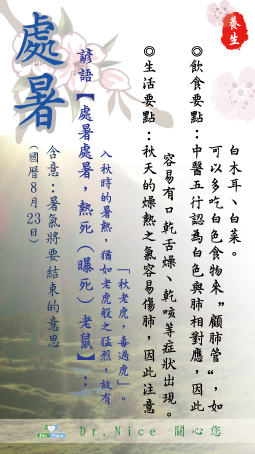 養生
處暑
(國曆8月23日)
含意:暑氣將要結束的意思
諺語【處暑處暑,熱死(曝死)老鼠】::
入秋時的暑熱,猶如老虎般之猛烈,故有
「秋老虎,毒過虎」。
◎生活要點:秋天的燥熱之氣容易傷肺,因此注意
容易有口乾舌燥、乾咳等症狀出現。
◎飲食要點:中醫五行認為白色與肺相對應,因此
可以多吃白色食物來”顧肺管“,如
白木耳、白菜。
Dr. Nice
Dr.Nice 關心您